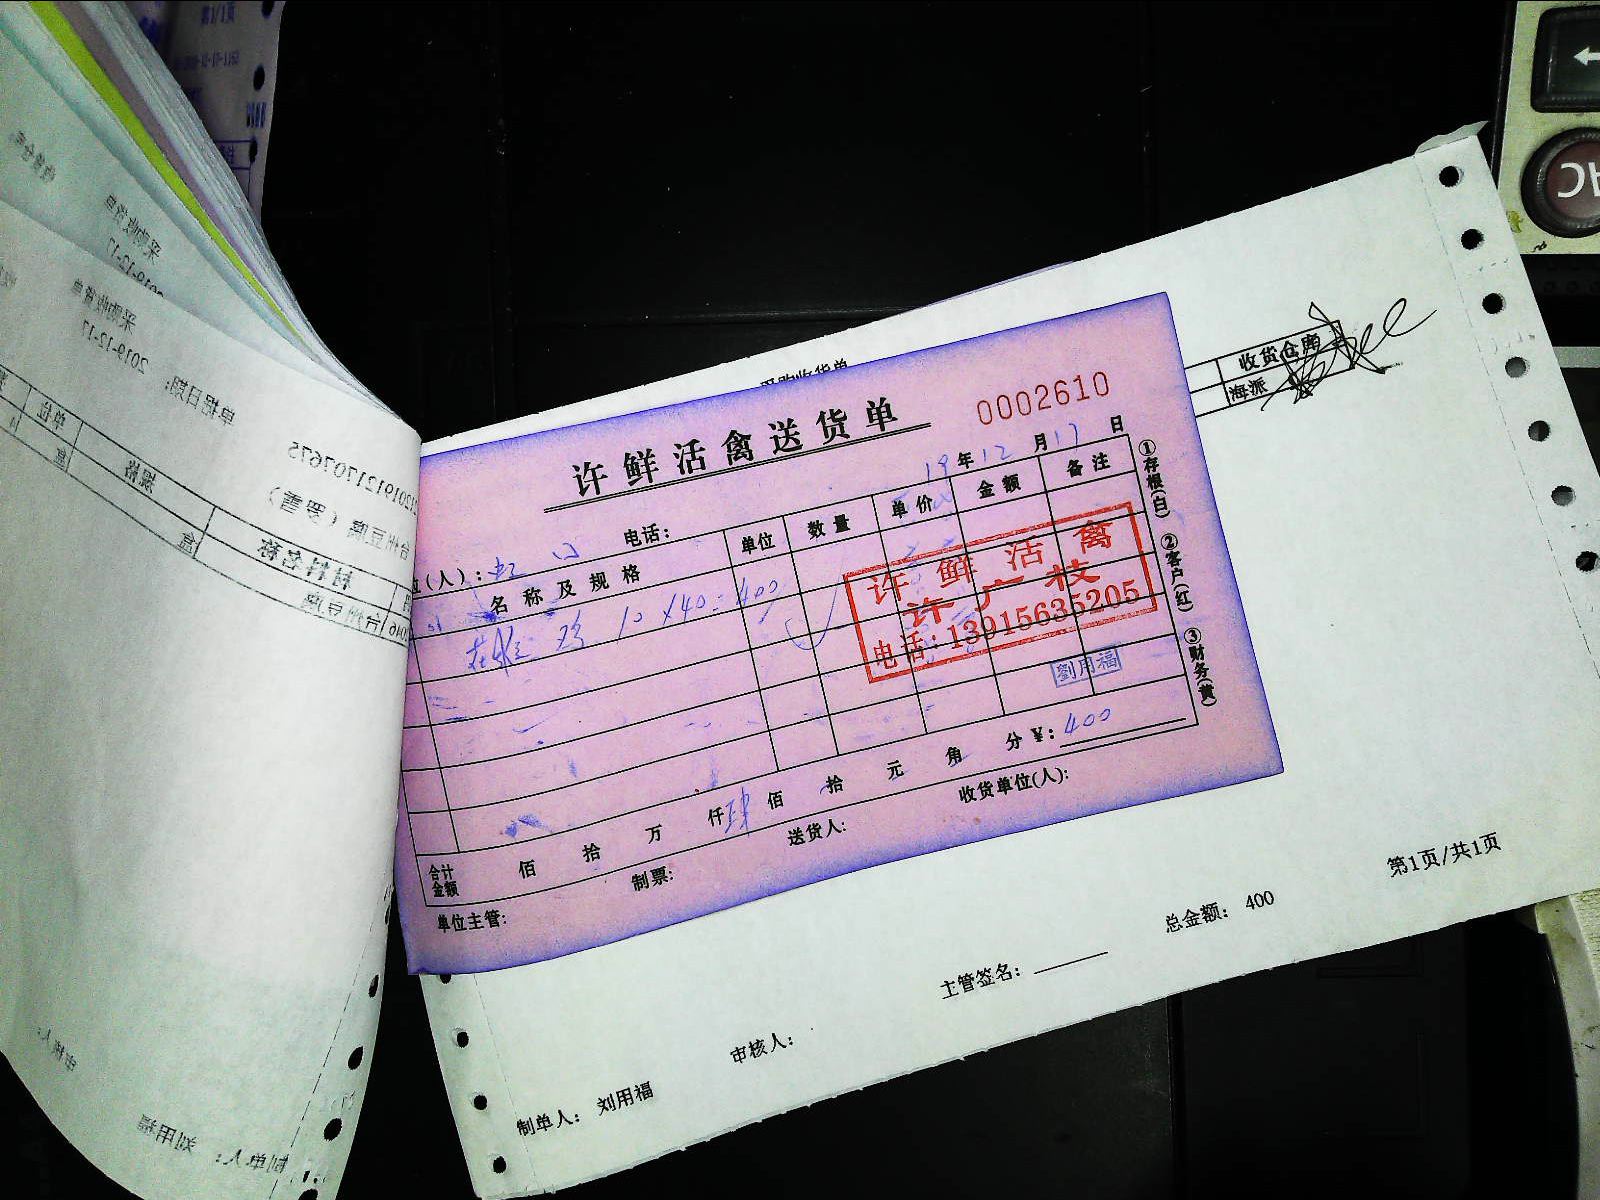 第1/1页
采购收货单
2019-12-17
采购收货单
2019-12-17
单据日期:
单位
规格
盒
2019121707675
台州豆腐
材料名称
盒
台州豆腐
审核人:
制单人: 刘用福
采购收货单
收货仓库
海派
许鲜活禽送货单
0002610
19年12月17日
位(人):虹口
电话:
名称及规格
单位
数量
单价
金额
备注
鸡 10×40=400
许鲜活禽
许广枝
电话:13915635205
劉用福
合计金额
佰 拾 万 仟 肆 佰 拾 元 角 分 ¥:400
单位主管:
制票:
送货人:
收货单位(人):
①存根(白) ②客户(红) ③财务(黄)
第1页/共1页
总金额: 400
主管签名:
审核人:
制单人: 刘用福